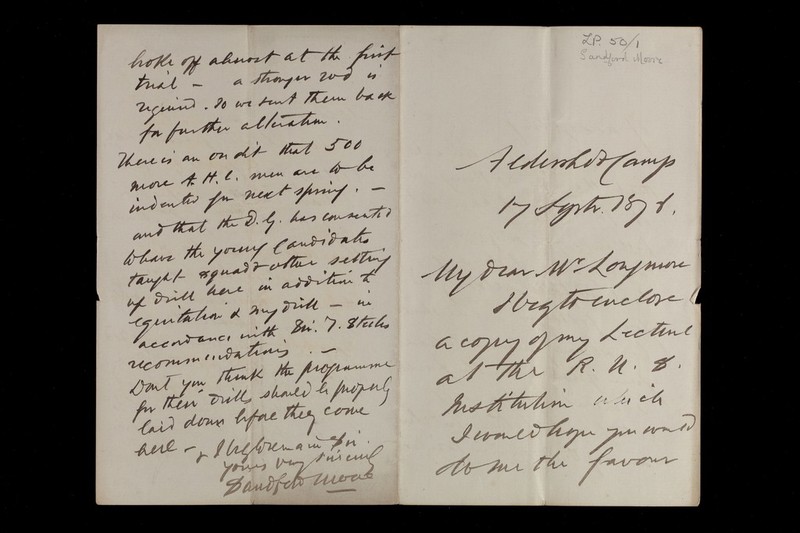 LP. 50/1
Sandford Moore
broke off almost at the first
trial - a stronger rod is
required. So we sent them back
for further alteration.
There is an on dit that 500
more A. H. C. men are to be
indented for next spring. -
and that the D. G. has consented
to have the young Candidates
taught squad & other setting
up drill here in addition to
equitation & my drill - in
accordance with Sir. T. Steeles
recommendations. -
Dont you think the programme
for their drills should be properly
laid down before they come
here - & I beg to remain Sir.
yours very sincerely
Sandford Moore
Aldershot Camp
17 Septr. 1878.
My dear Mr Longmore
I beg to enclose
a copy of my Lecture
at the R. U. S.
Institution which
I would hope you would
do me the favour